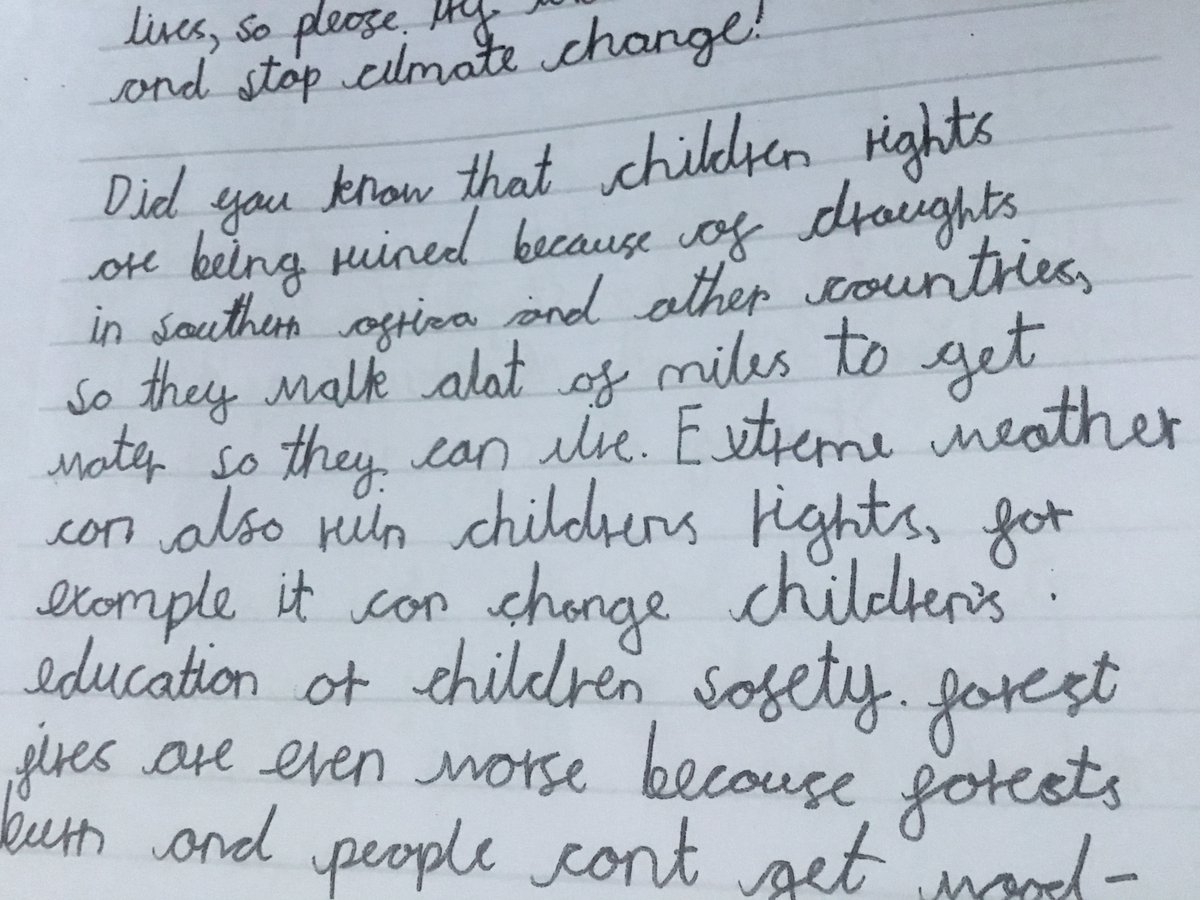 lives, so please. try
and stop cilmate change!
Did you know that children rights
are being ruined because of draughts
in southern africa and other countries,
so they walk alot of miles to get
water so they can live. Extreme weather
can also ruin childrens rights, for
example it can change children's
education or children safety. forest
fires are even worse because forests
burn and people cant get wood-